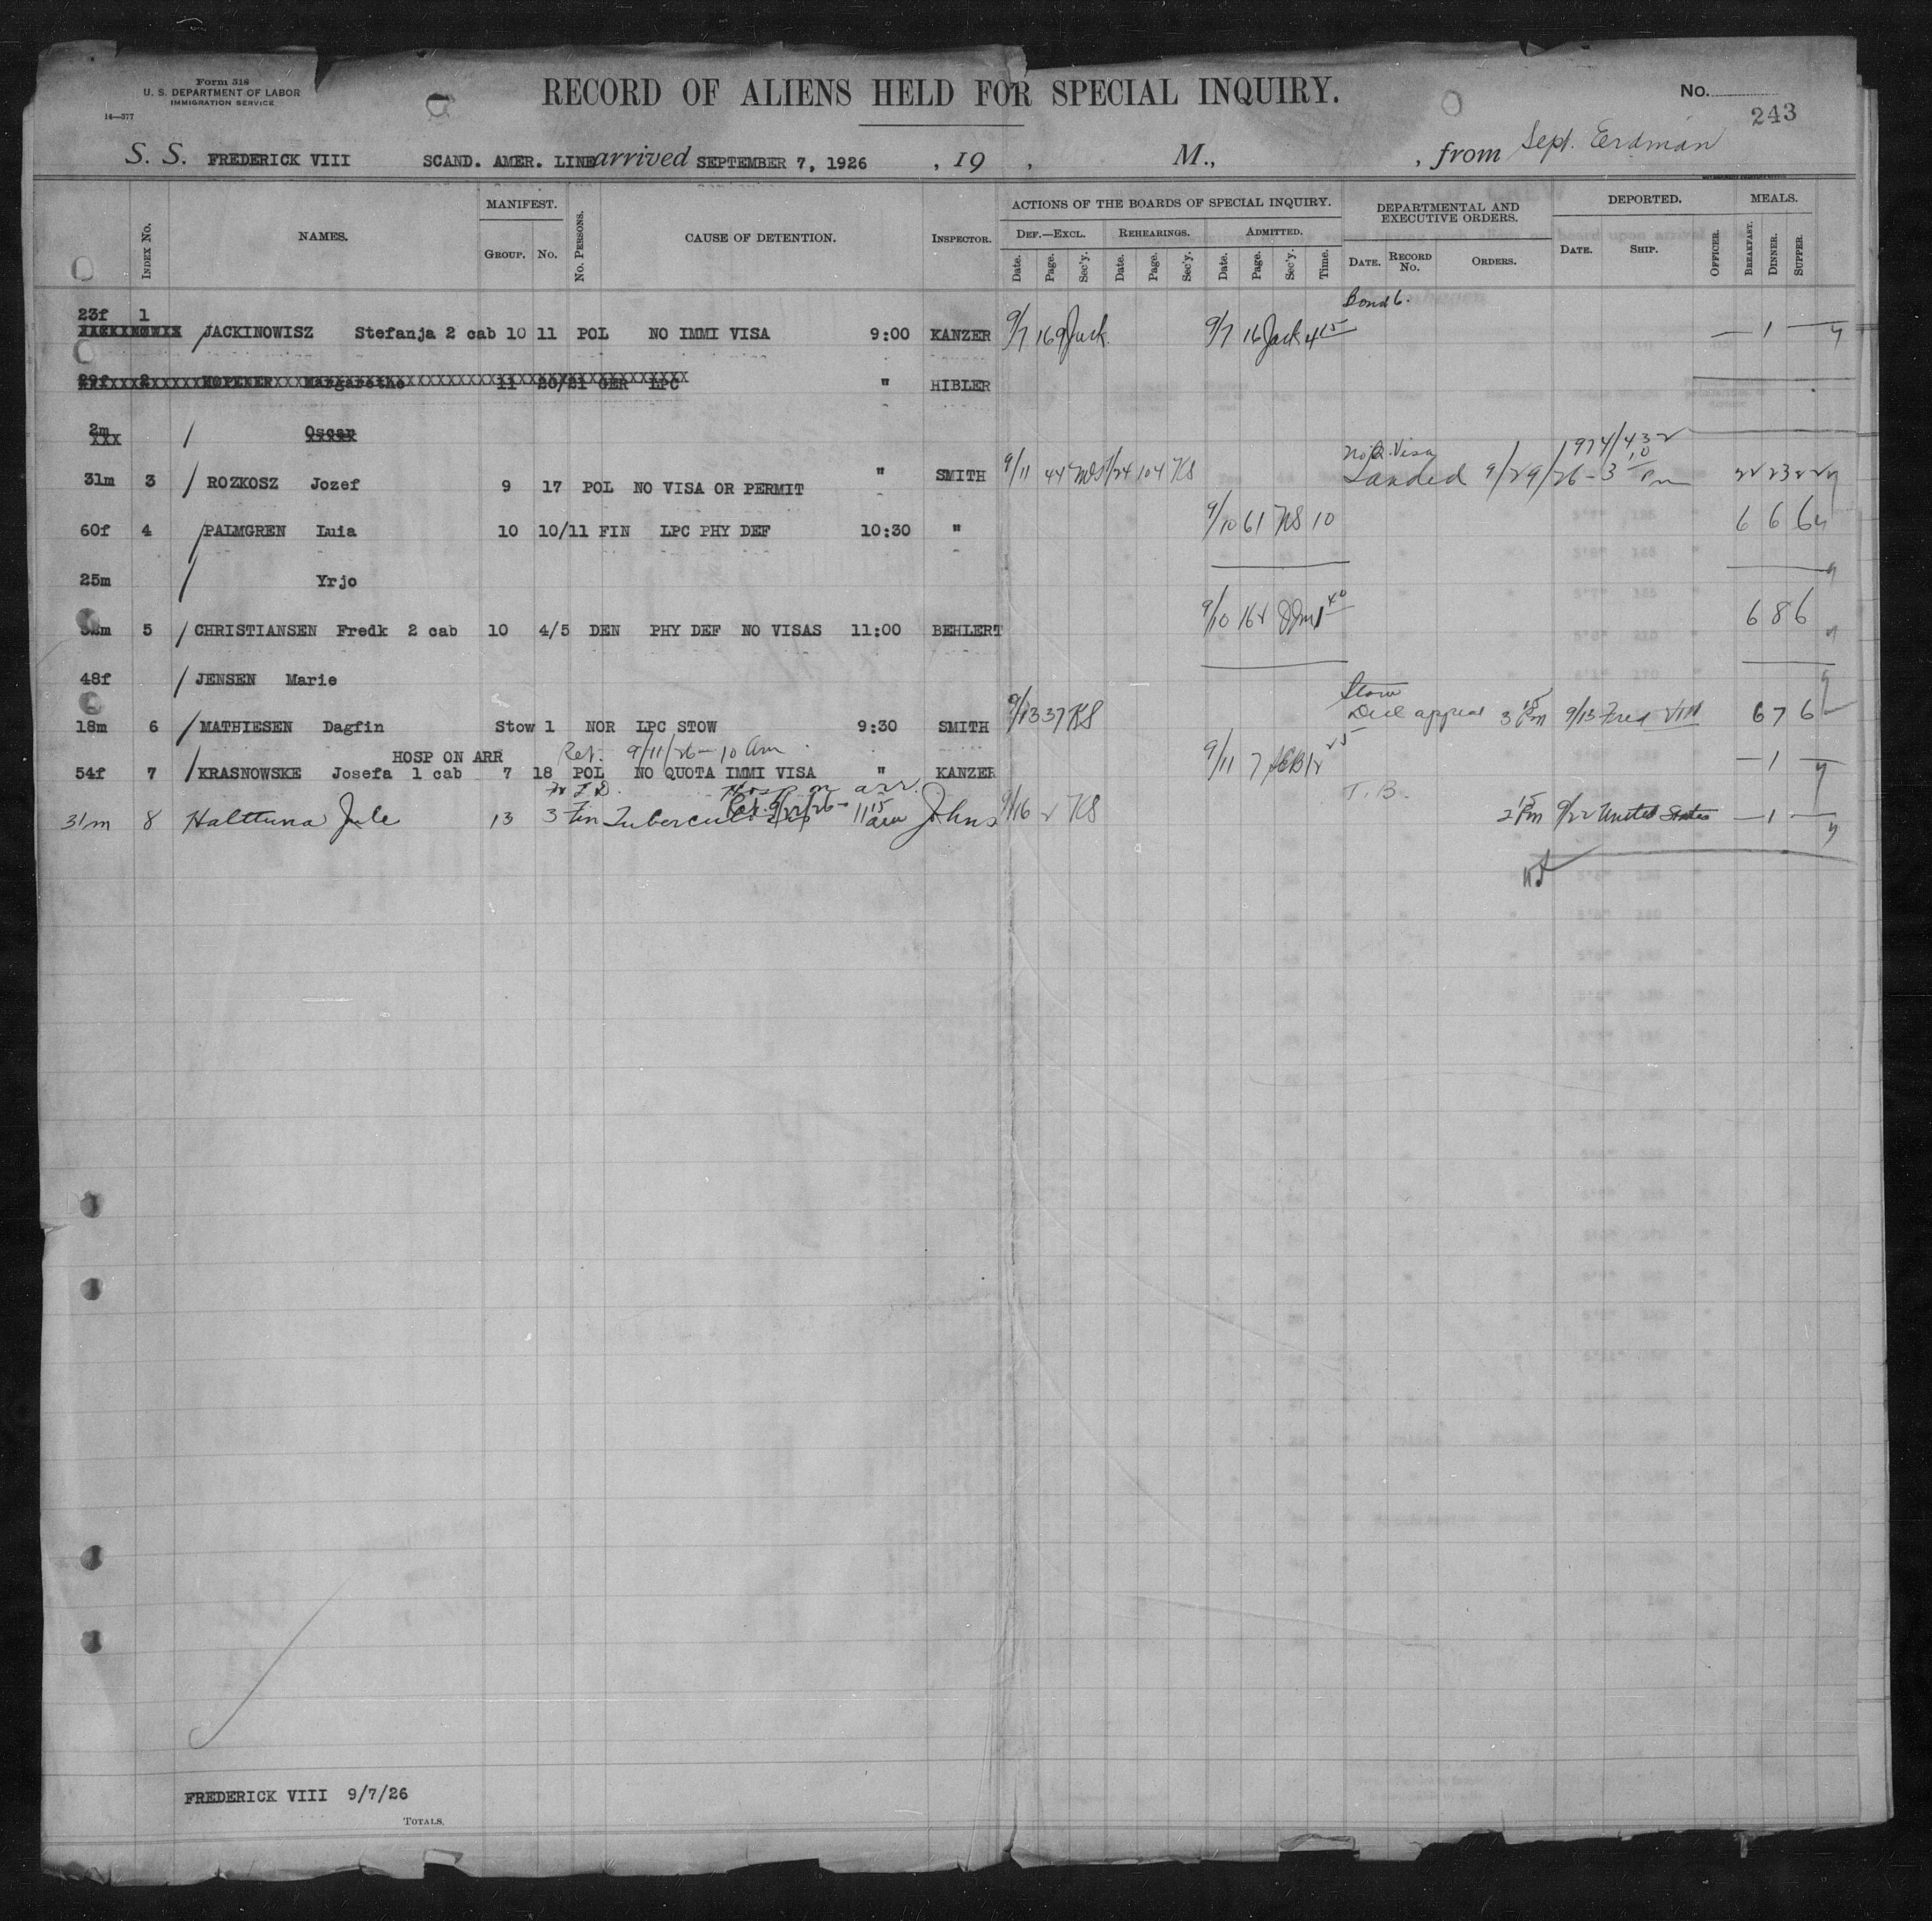 Form 518
U. S. DEPARTMENT OF LABOR
IMMIGRATION SERVICE
14—377
RECORD OF ALIENS HELD FOR SPECIAL INQUIRY.
No.
243
S. S. FREDERICK VIII SCAND. AMER. LINE arrived SEPTEMBER 7, 1926 , 19 , M., , from Sept. Eerdman
INDEX No. NAMES. MANIFEST. GROUP. No. No. PERSONS. CAUSE OF DETENTION. INSPECTOR. ACTIONS OF THE BOARDS OF SPECIAL INQUIRY. DEPARTMENTAL AND EXECUTIVE ORDERS. DEPORTED. MEALS.
DEF.—EXCL. REHEARINGS. ADMITTED.
Date. Page. Sec'y. Date. Page. Sec'y. Date. Page. Sec'y. Time. DATE. RECORD No. ORDERS. DATE. SHIP. OFFICER. BREAKFAST. DINNER. SUPPER.
Bond
23f 1
JACKINOWISZ Stefanja 2 cab 10 11 POL NO IMMI VISA 9:00 KANZER 9/7 169 Jack 9/7 16 Jack 4 15 — 1 —
29f 2 HOPEKER Margarethe 11 20/21 GER LPC " HIBLER
2m Oscar
No Q. Visa
31m 3 / ROZKOSZ Jozef 9 17 POL NO VISA OR PERMIT " SMITH 9/11 44 104 KS Landed 9/29/26 - 3 10 Pm 22 23 22
60f 4 / PALMGREN Luia 10 10/11 FIN LPC PHY DEF 10:30 " 9/10 61 KS 10 6 6 6
25m / Yrjo
5 / CHRISTIANSEN Fredk 2 cab 10 4/5 DEN PHY DEF NO VISAS 11:00 BEHLERT 9/10 1 40 6 8 6
48f / JENSEN Marie
Stow
18m 6 / MATHIESEN Dagfin Stow 1 NOR LPC STOW 9:30 SMITH 9/13 37 KS Decl appeal 3 15 Pm 9/15 Fred VIII 6 7 6
HOSP ON ARR Ret. 9/11/26 - 10 am
54f 7 / KRASNOWSKE Josefa 1 cab 7 18 POL NO QUOTA IMMI VISA " KANZER 9/11 7 — 1 —
Hosp on arr. T. B.
31m 8 Halttuna Jule 13 3 Fin Tuberculosis 11 15 am Johns 9/16 2 KS 2 15 Pm 9/22 United States — 1 —
FREDERICK VIII 9/7/26
TOTALS.